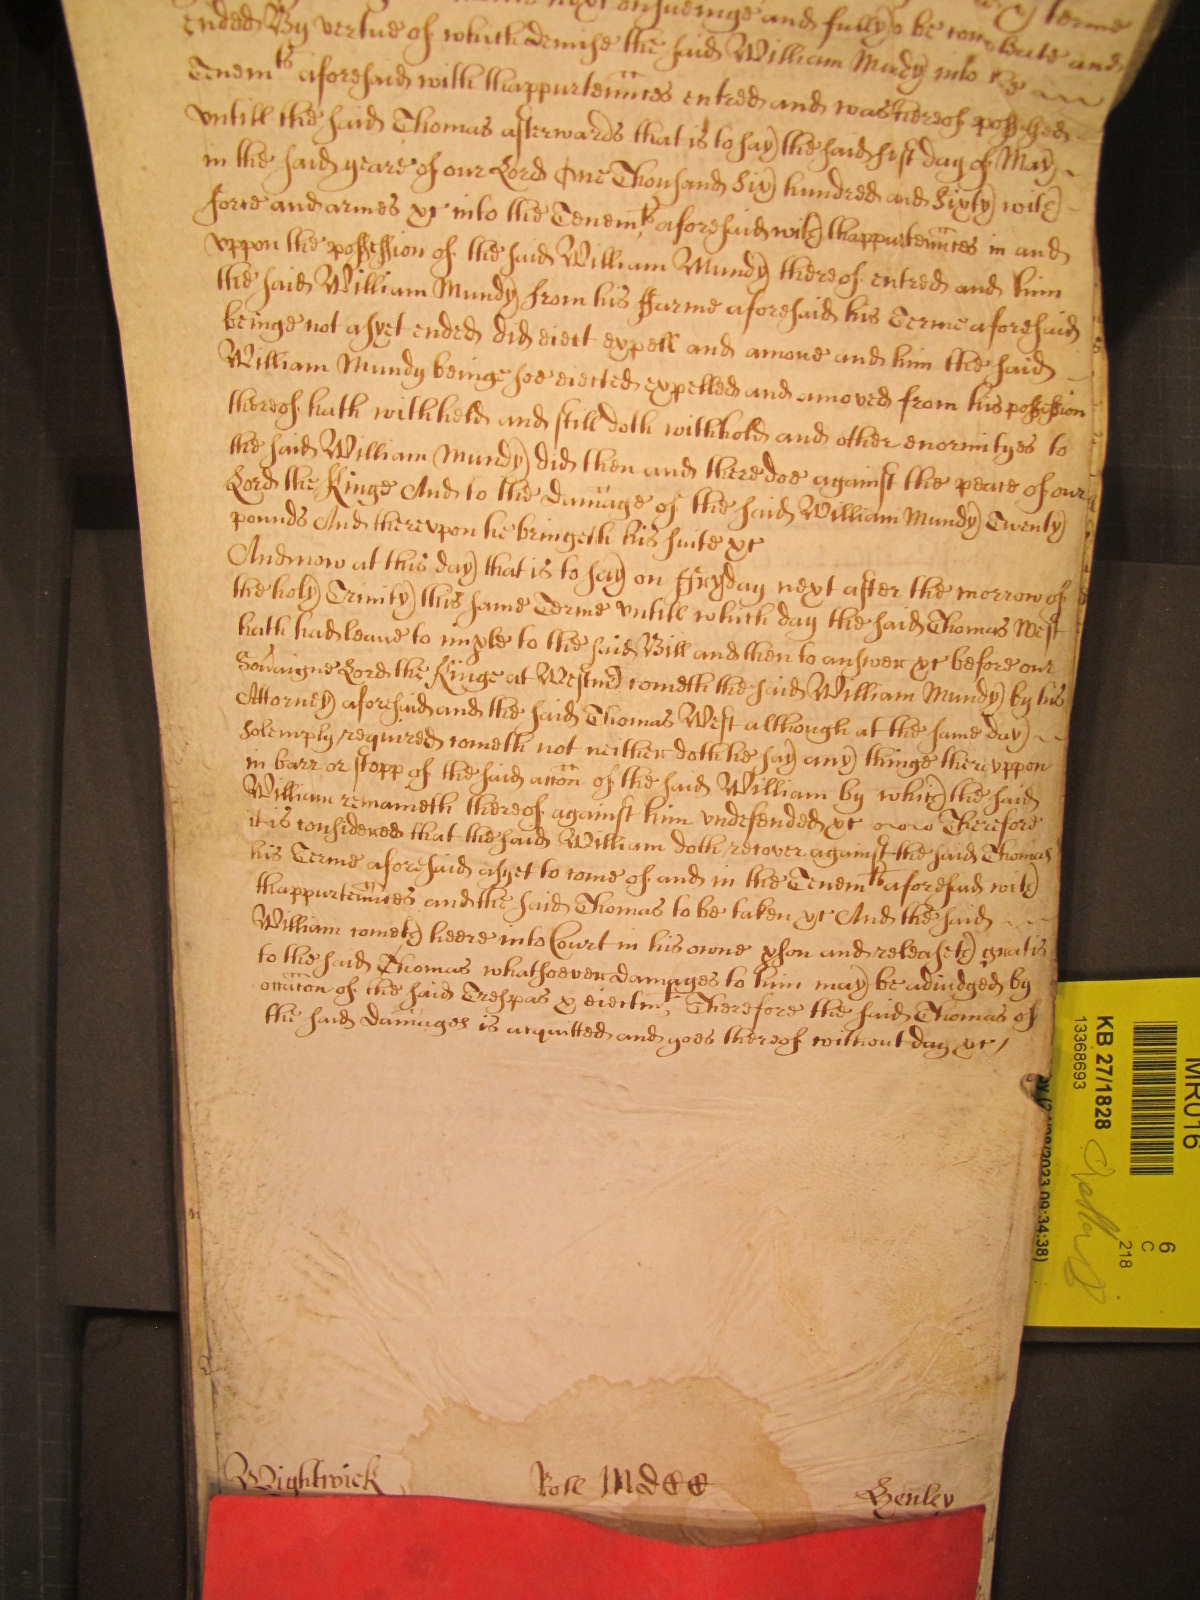 next ensueinge and fully to be compleate and
ended By vertue of which demise the said William Mundy into the
Tenemts aforesaid with thappurtenñces entred and was thereof possessed
vntill the said Thomas afterwards that is to say the said first day of May
in the said yeare of our Lord One Thousand Six hundred and Sixty with
force and armes &c into the Tenemts aforesaid with thappurtenñces in and
vppon the possession of the said William Mundy thereof entred and him
the said William Mundy from his ffarme aforesaid his Terme aforesaid
beinge not as yet ended did eiect expell and amove and him the said
William Mundy beinge soe eiected expelled and amoved from his possession
thereof hath withheld and still doth withhold and other enormityes to
the said William Mundy did then and there doe against the peace of our
Lord the Kinge And to the damage of the said William Mundy Twenty
pounds And therevpon he bringeth his suite &c
And now at this day that is to say on ffryday next after the morrow of
the holy Trinity this same Terme vntill which day the said Thomas West
hath had leave to imple to the said Bill and then to answer &c before our
Soveraigne Lord the Kinge at Westm̃ cometh the said William Mundy by his
Attorney aforesaid and the said Thomas West although at the same day
solemply required cometh not neither doth he say any thinge therevppon
in barr or stopp of the said accõn of the said William by which the said
William remaineth thereof against him vndefended &c Therefore
it is considered that the said William doth recover against the said Thomas
his Terme aforesaid as yet to come of and in the Tenemts aforesaid with
thappurtenñces and the said Thomas to be taken &c And the said
William cometh heere into Court in his owne pson and releaseth gratis
to the said Thomas whatsoever damages to him may be adiudged by
occacõn of the said Trespas & eiectmt Therefore the said Thomas of
the said damages is acquitted and goes thereof without day &c
Wightwick Roll MDCC Henley
MR016
6
C
218
KB 27/1828
13368693
2023 09:34:38)